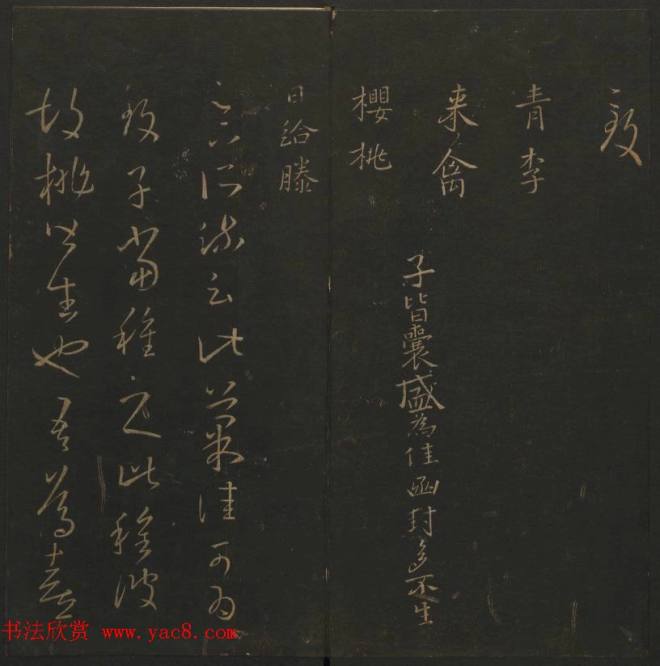 致
青李
来禽
櫻桃
日給滕
子皆囊盛為佳函封多不生
足下所疏云此菓佳可為
致子當種之此種彼
胡桃皆生也吾篤喜
书法欣赏 www.yac8.com